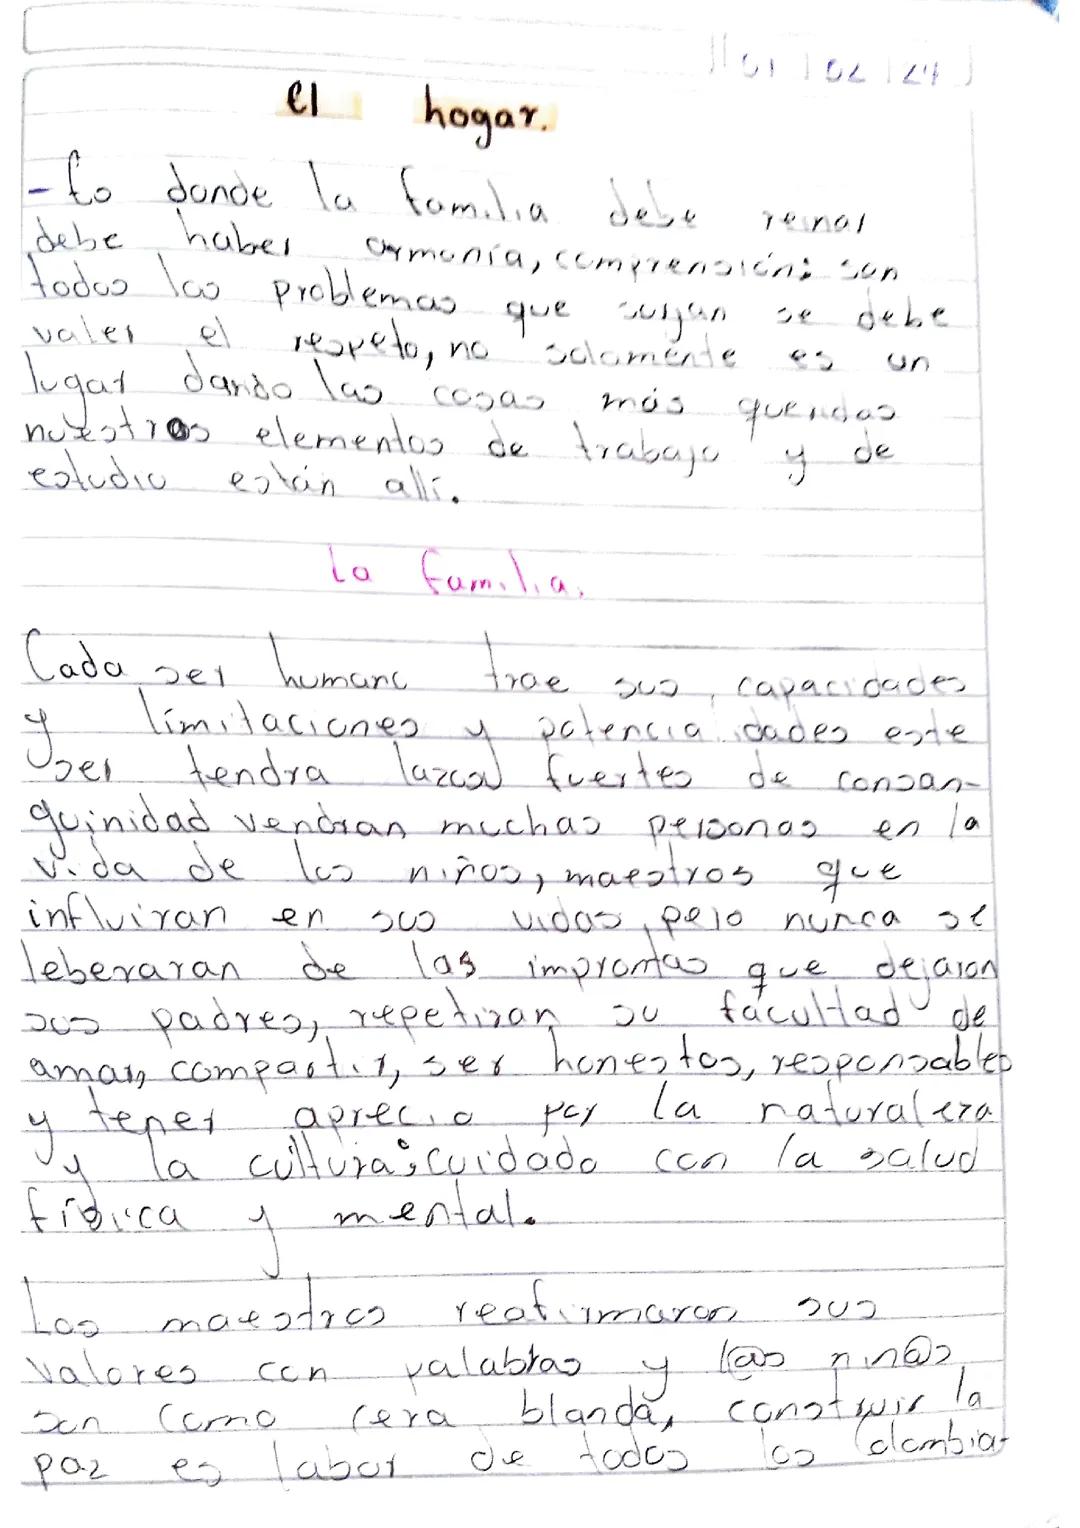 01 02 24
el hogar.
- Es donde la familia debe reinar
debe haber armonía, comprensión; son
todos los problemas que surjan se debe
valer el respeto, no solamente es un
lugar dando las cosas más queridas
nuestros elementos de trabajo y de
estudio están allí.
La familia.
Cada ser humano trae sus, capacidades
y limitaciones y potencialidades este
ser tendra lazos fuertes de consan-
guinidad vendran muchas personas en la
vida de los niños, maestros que
influiran en sus vidas, pero nunca se
leberaran de las improntas que dejaron
sus padres, repetiran su facultad de
amar, compartir, ser honestos, responsables
y tener aprecio por la naturaleza
y la cultura; cuidado con la salud
física y mental.
Los maestros reafirmaran sus
valores con palabras y l@s niñ@s,
son como cera blanda, construir la
paz es labor de todos los Colombia-